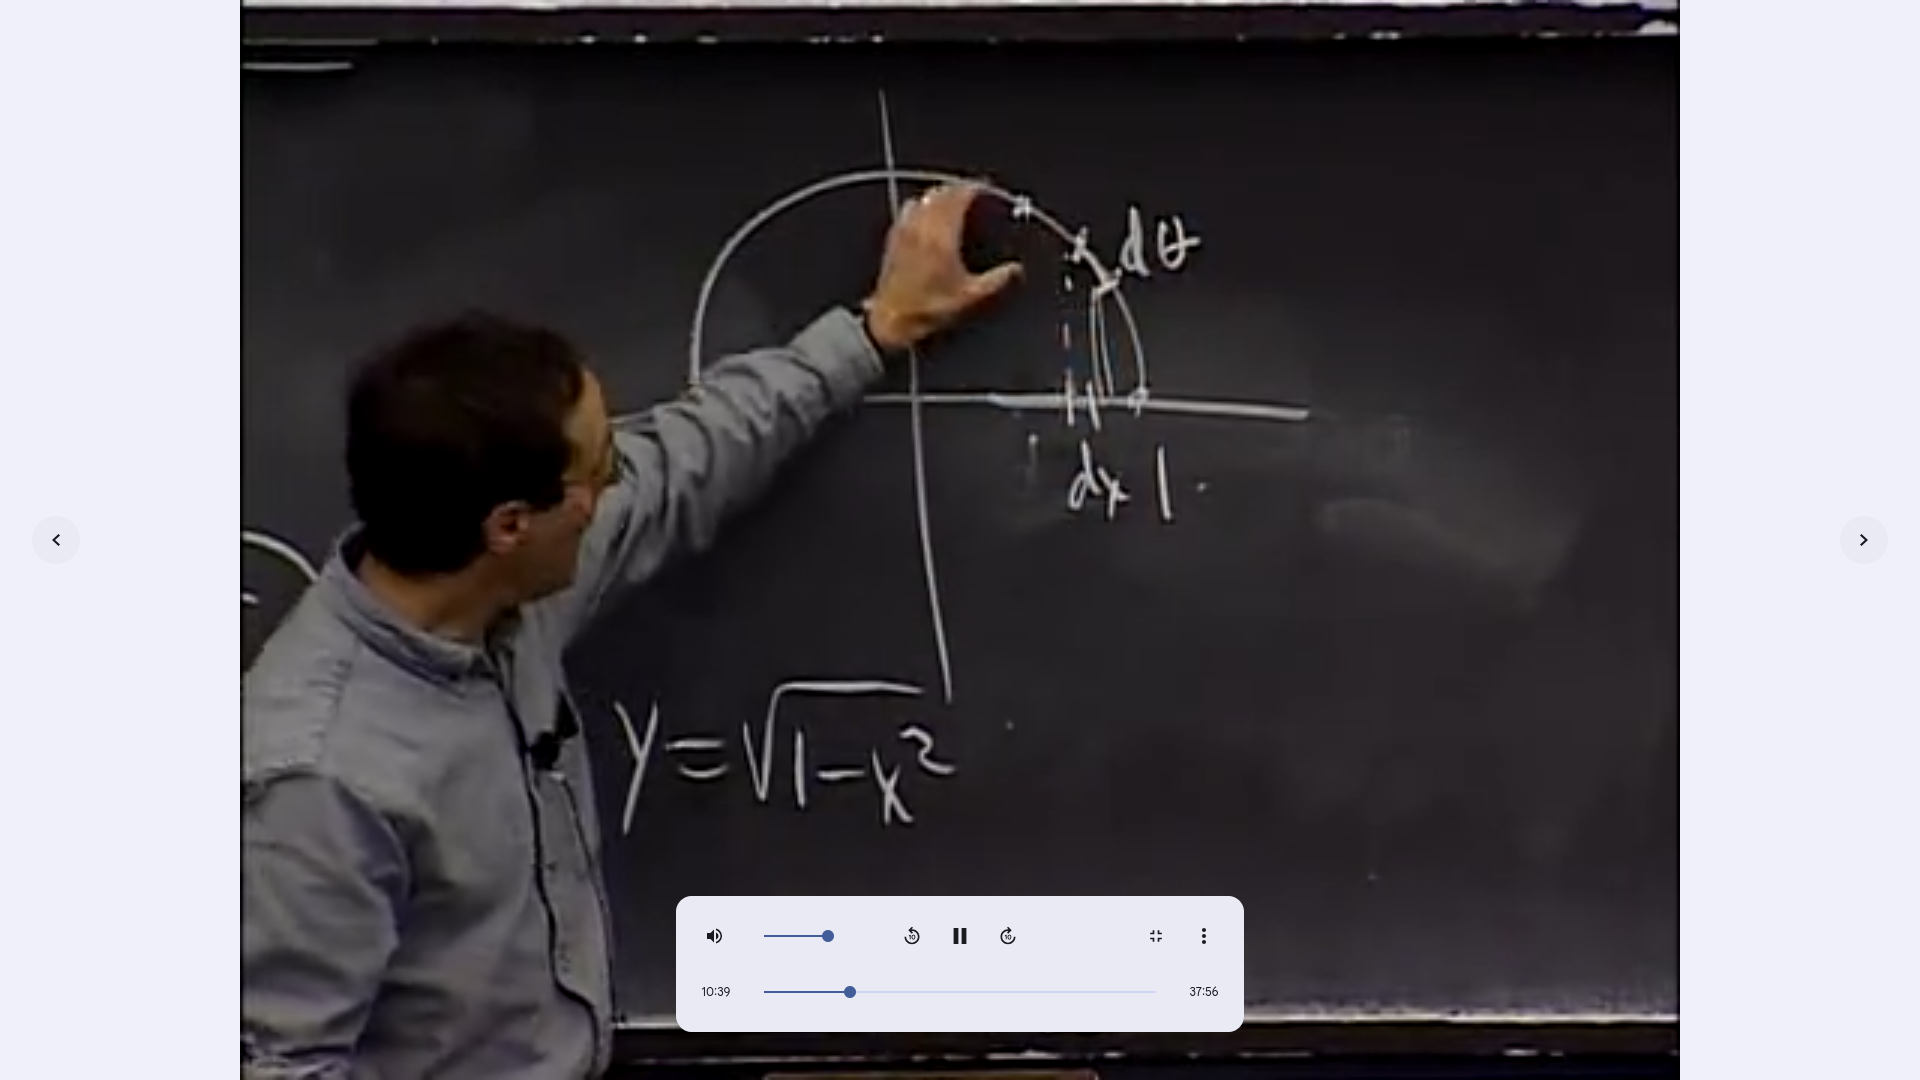 dθ
dx 1
y=√1-x²
10:39
37:56